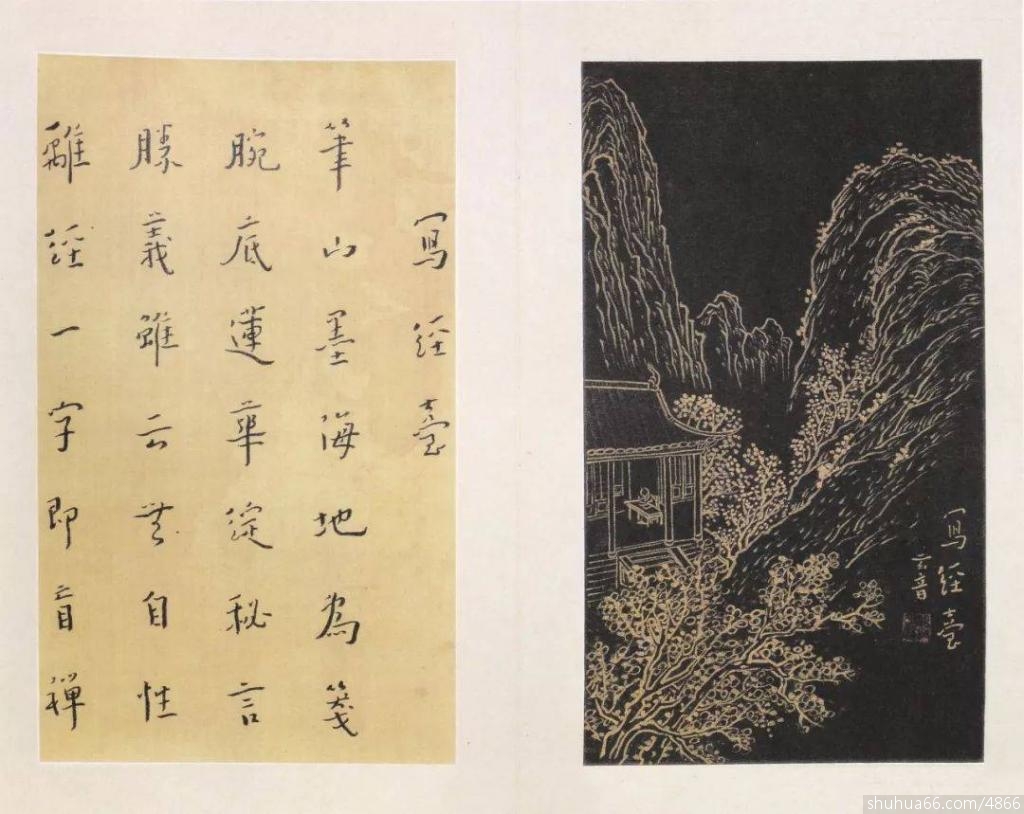 寫經臺
云音
寫經臺
筆山墨海地為箋
腕底蓮華綻秘言
勝義雖云無自性
離經一字即盲禪
shuhua66.com/4866